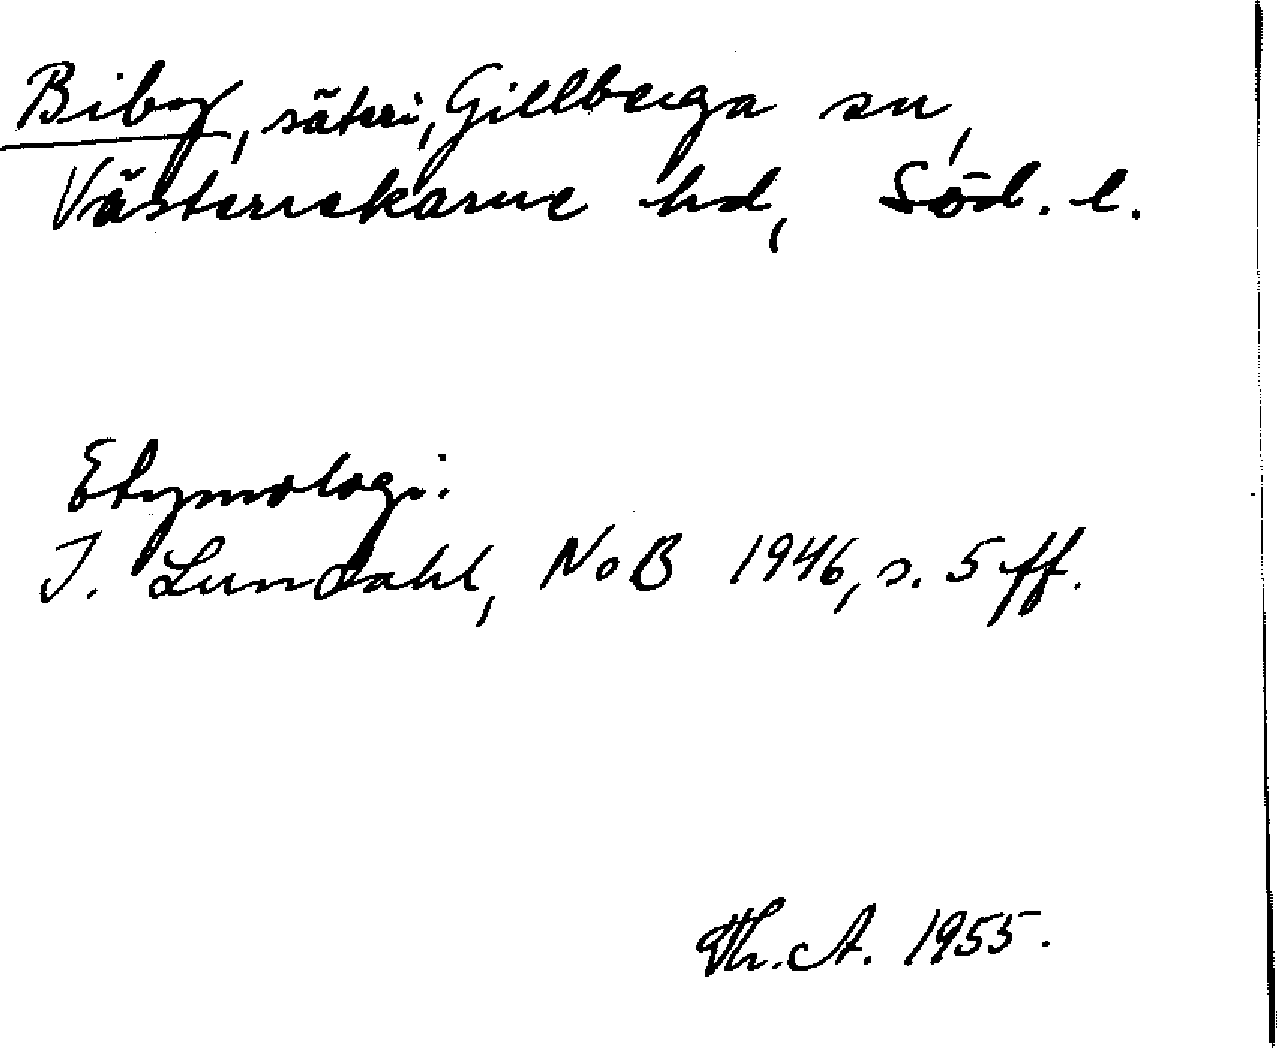 Biby, säteri, Gillberga sn,
Västerrekarne hd, Söd. l.
Etymologi:
I. Lundahl, NoB 1946, s. 5 ff.
Th. A. 1955.